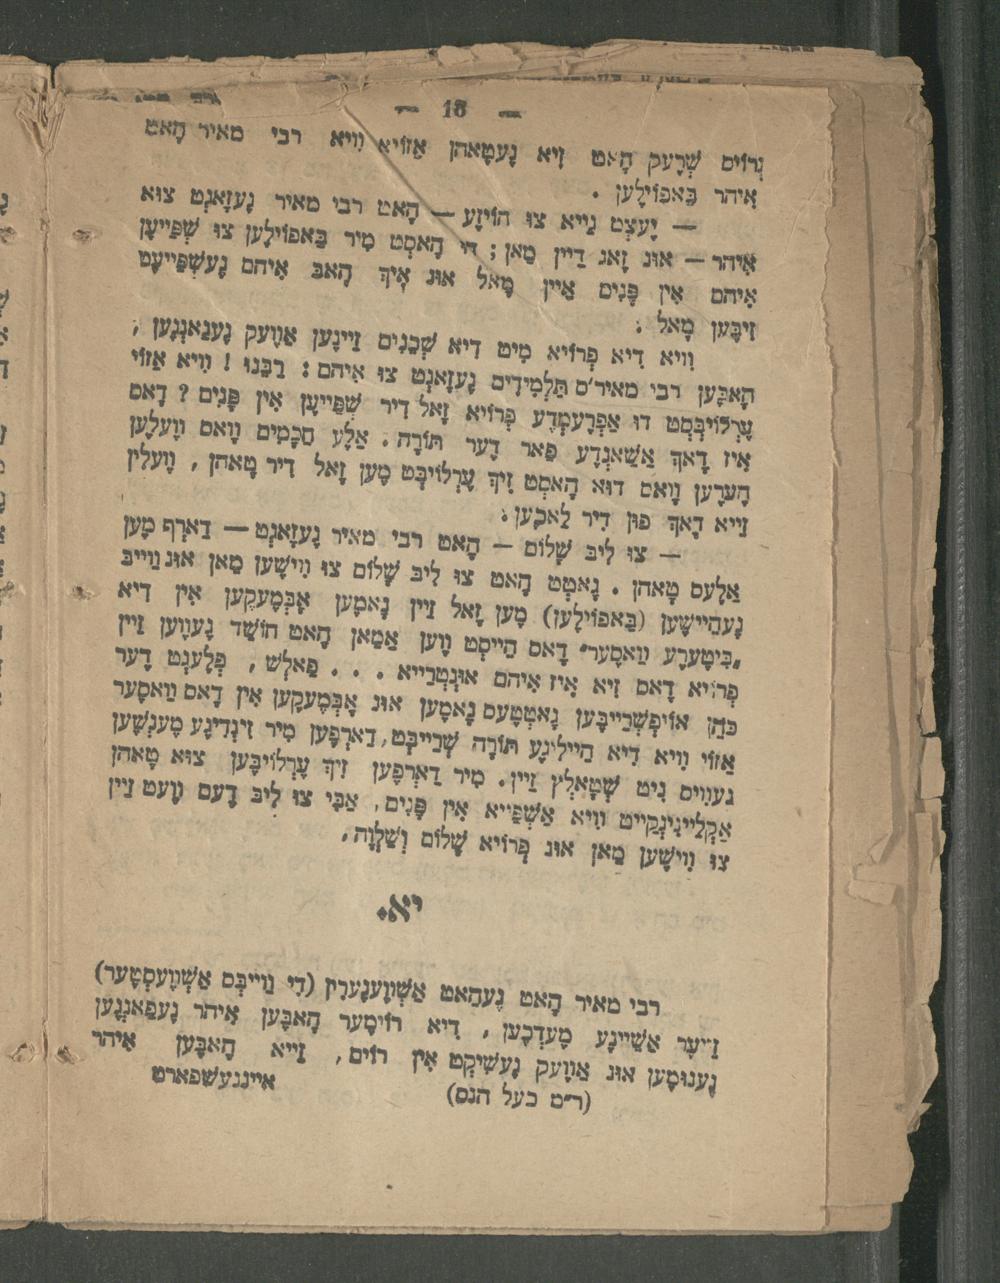 — 18 —
גְרוֹיס שְׁרֶעק הָאט זִיא גֶעטָאהן אַזוֹיא וִויא רבי מאיר הָאט
אִיהר בַּאפוֹילֶען .
— יֶעצְט גַייא צוּ הוֹיזֶע — הָאט רבי מאיר גֶעזָאגְט צוּא
אִיהר — אוּנ זָאג דַיין מַאן ; דִי הָאסְט מִיר בַּאפוֹילֶען צוּ שְׁפַּייֶען
אִיהם אִין פָּנִים אַיין מָאל אוּנ אִיךְ הָאבּ אִיהם גֶעשְׁפַּייעֶט
זִיבֶּען מָאל :
וִויא דִיא פְרוֹיא מִיט דִיא שְׁכֵנִים זַיינֶען אַוֶועק גֶעגַאנְגֶען ,
הָאבֶּען רבי מאיר׳ס תַּלְמִידִים גֶעזָאגְט צוּ אִיהם : רַבֵּנוּ ! וִויא אַזוֹי
עֶרְלוֹיבְּסְט דוּ אַפְרֶעמְדֶע פְרוֹיא זָאל דִיר שְׁפַּייֶען אִין פָּנִים ? דָאס
אִיז דָאךְ אַשַׁאנְדֶע פַאר דֶער תּוֹרָה . אַלֶע חֲכָמִים וָואס וֶועלֶען
הֶערֶען וָואס דוּא הָאסְט זִיךְ עֶרְלוֹיבְּט מֶען זָאל דִיר טָאהן , וֶועלִין
זַייא דָאךְ פוּן דִיר לַאכֶען :
— צוּ לִיבּ שָׁלוֹם — הָאט רבי מאיר גֶעזָאגְט — דַארְף מֶען
אַלֶעס טָאהן . גָאטְט הָאט צוּ לִיבּ שָׁלוֹם צוּ וִוישֶׁען מַאן אוּנ וַוייבּ
גֶעהַיישֶׁען (בַּאפוֹילֶען) מֶען זָאל זַיין נָאמֶען אָבְּמֶעקֶען אִין דִיא
„בִּיטֶערֶע וַואסֶער״ דָאס הַייסְט וֶוען אַמַאן הָאט חוֹשֵׁד גֶעוֶוען זַיין
פְרוֹיא דָאס זִיא אִיז אִיהם אוּנְטְרַייא . . . פַאלְשׁ , פְלֶעגְט דֶער
כֹּהֵן אוֹיפְשְׁרַייבֶּען גָאטְטֶעס נָאמֶען אוּנ אָבְּמֶעקֶען אִין דָאס וַואסֶער
אַזוֹי וִויא דִיא הַיילִיגֶע תּוֹרָה שְׁרַייבְּט, דַארְפֶען מִיר זִינְדִיגֶע מֶענְשֶׁען
גֶעוִויס נִיט שְׁטָאלְץ זַיין . מִיר דַארְפֶען זִיךְ עֶרְלוֹיבֶּען צוּא טָאהן
אַקְלַיינִיגְקַייט וִויא אַשְׁפַּייא אִין פָּנִים, אַבִּי צוּ לִיבּ דֶעם וֶועט זַיין
צוּ וִוישֶׁען מַאן אוּנ פְרוֹיא שָׁלוֹם וְשַׁלְוָה,
יא.
רבי מאיר הָאט גֶעהַאט אַשְׁוֶוענֶערִין (דִי וַוייבְּס אַשְׁוֶועסְטֶער)
זֵייעֶר אַשֵׁיינֶע מֶעדְכֶען , דִיא רוֹימֶער הָאבֶּען אִיהר גֶעפַאנְגֶען
גֶענוּמֶען אוּנ אַוֶועק גֶעשִׁיקְט אִין רוֹים, זַייא הָאבֶּען אִיהר
(ר״מ בעל הנס) איינגעשפארט